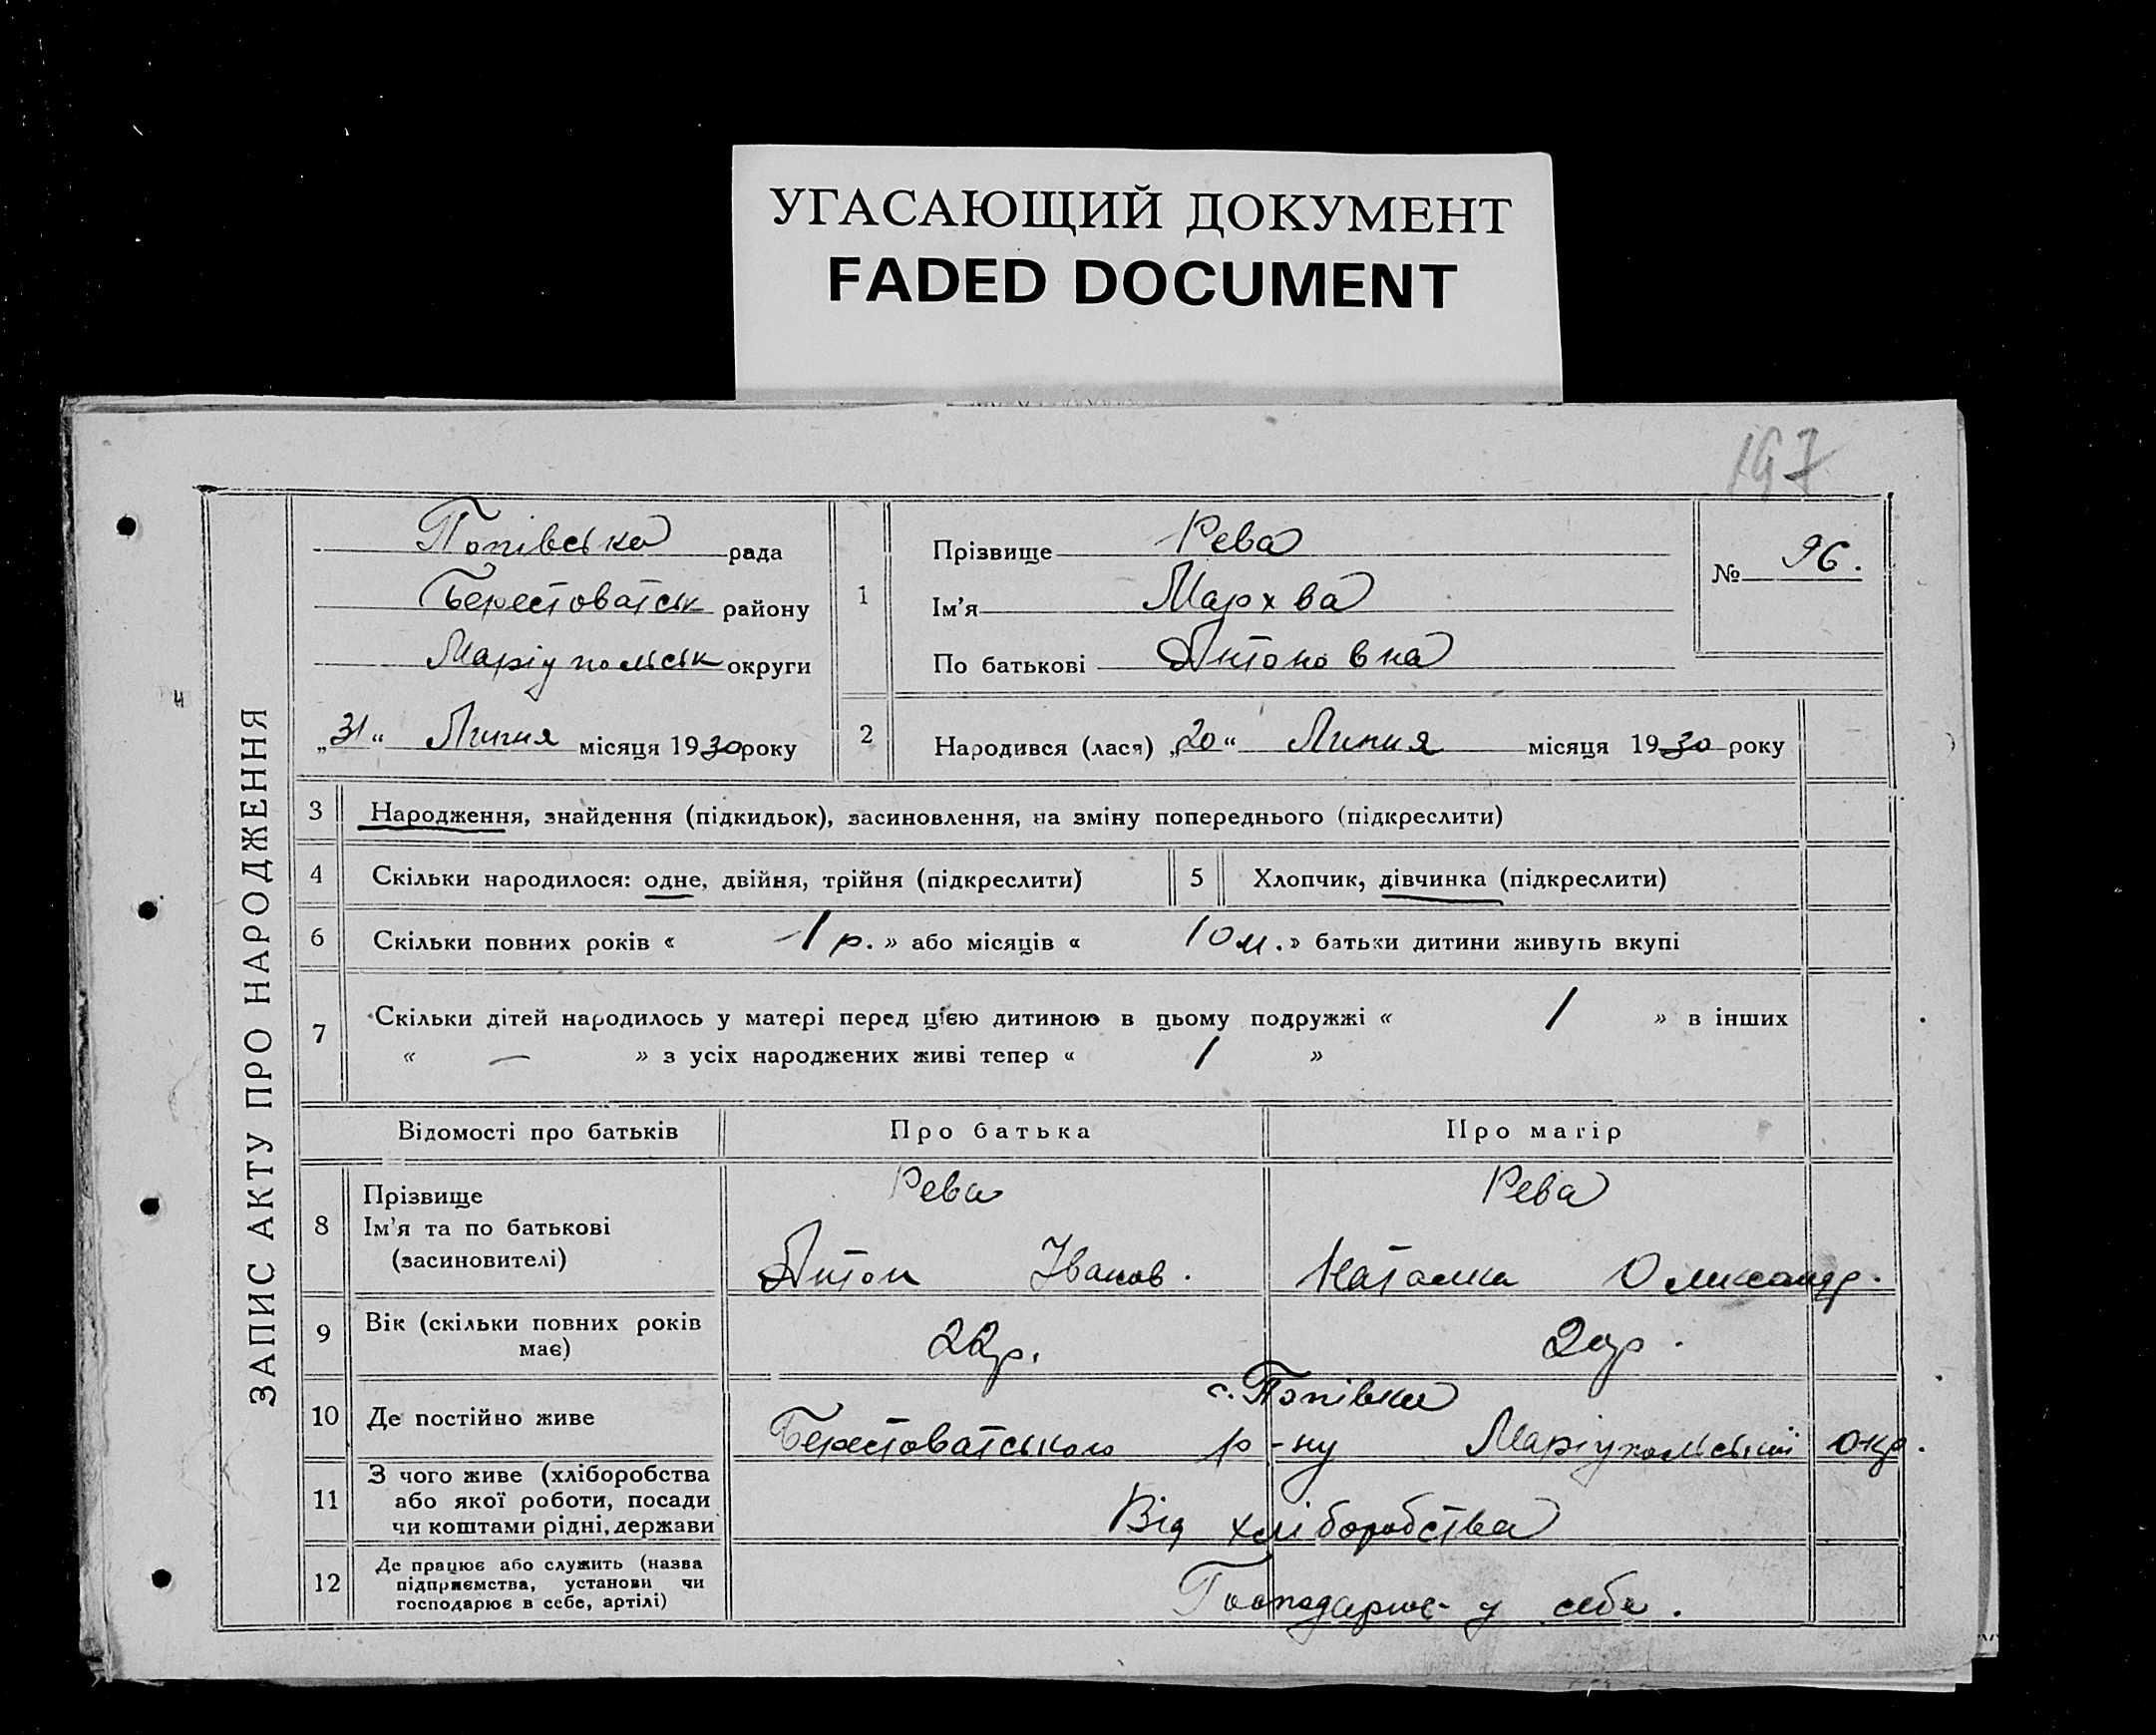 УГАСАЮЩИЙ ДОКУМЕНТ
FADED DOCUMENT
197
ЗАПИС АКТУ ПРО НАРОДЖЕННЯ
Попівська рада
Берестоватськ району
Маріупольськ округи
„31“ Липня місяця 1930 року
1
Прізвище Рева
Ім'я Мархва
По батькові Антоновна
№ 96.
2 Народився (лася) „20“ Липня місяця 1930 року
3 Народження, знайдення (підкидьок), засиновлення, на зміну попереднього (підкреслити)
4 Скільки народилося: одне, двійня, трійня (підкреслити)
5 Хлопчик, дівчинка (підкреслити)
6 Скільки повних років « 1 р. » або місяців « 10 м. » батьки дитини живуть вкупі
7 Скільки дітей народилось у матері перед цією дитиною в цьому подружжі « 1 » в інших
« — » з усіх народжених живі тепер « 1 »
Відомості про батьків Про батька Про матір
8 Прізвище Рева Рева
Ім'я та по батькові
(засиновителі) Антон Іванов. Наталка Олександр.
9 Вік (скільки повних років
має) 22р. 20р.
с. Попівка
10 Де постійно живе Берестоватського р-ну Маріупольської окр.
11 З чого живе (хліборобства
або якої роботи, посади
чи коштами рідні, держави Від хліборобства
12 Де працює або служить (назва
підприємства, установи чи
господарює в себе, артілі) Господарює у себе.